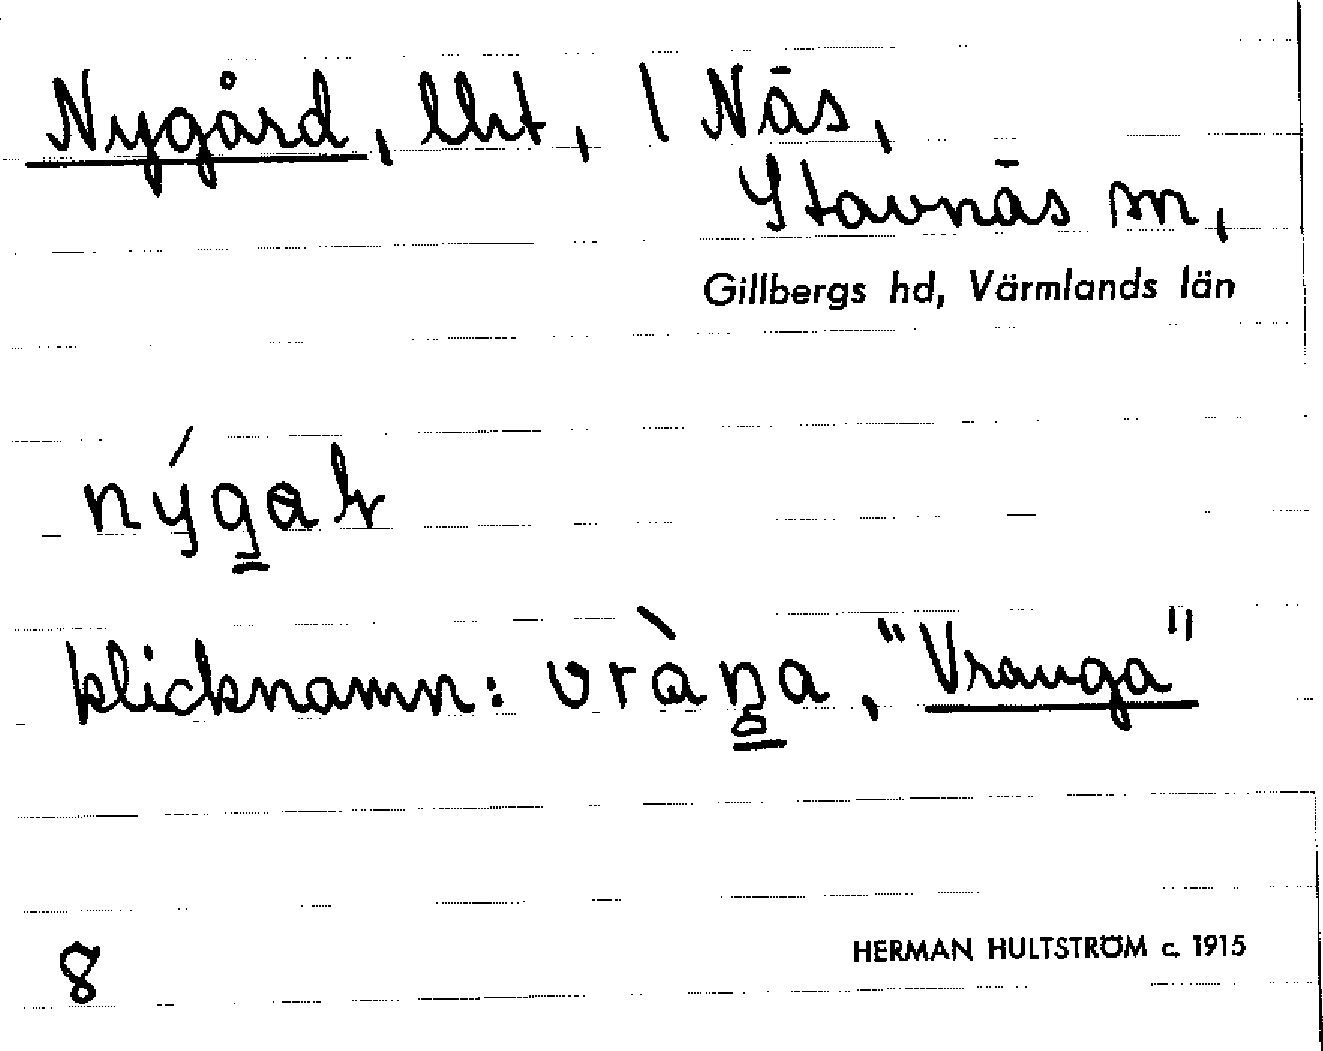 Nygård, lht, 1 Näs,
Stavnäs sn,
Gillbergs hd, Värmlands län
klicknamn: "Vranga"
8
HERMAN HULTSTRÖM c. 1915